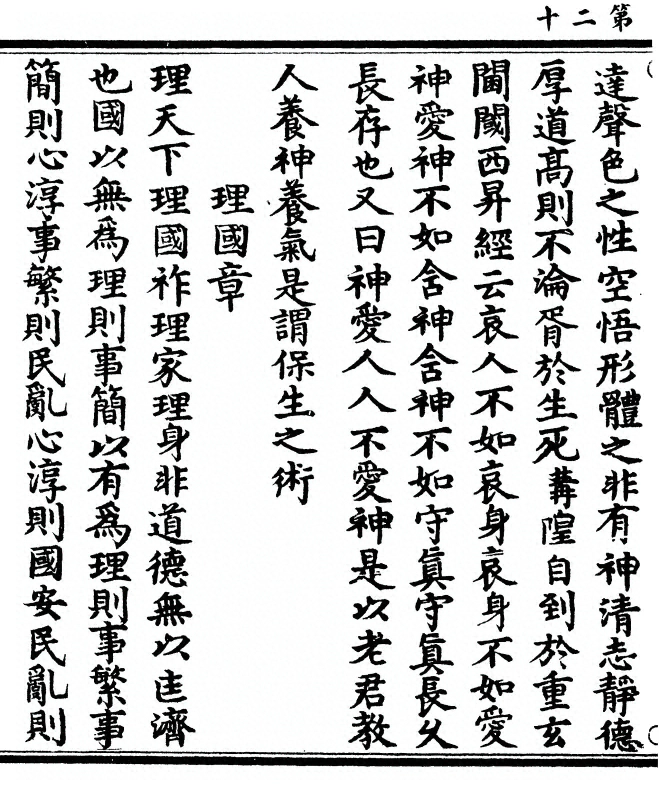 第二十
達聲色之性空悟形體之非有神清志靜德
厚道高則不淪胥於生死冓隍自到於重玄
閫閾西昇經云哀人不如哀身哀身不如愛
神愛神不如含神含神不如守眞守眞長久
長存也又曰神愛人人不愛神是以老君教
人養神養氣是謂保生之術
理國章
理天下理國祚理家理身非道德無以匡濟
也國以無爲理則事簡以有爲理則事繁事
簡則心淳事繁則民亂心淳則國安民亂則